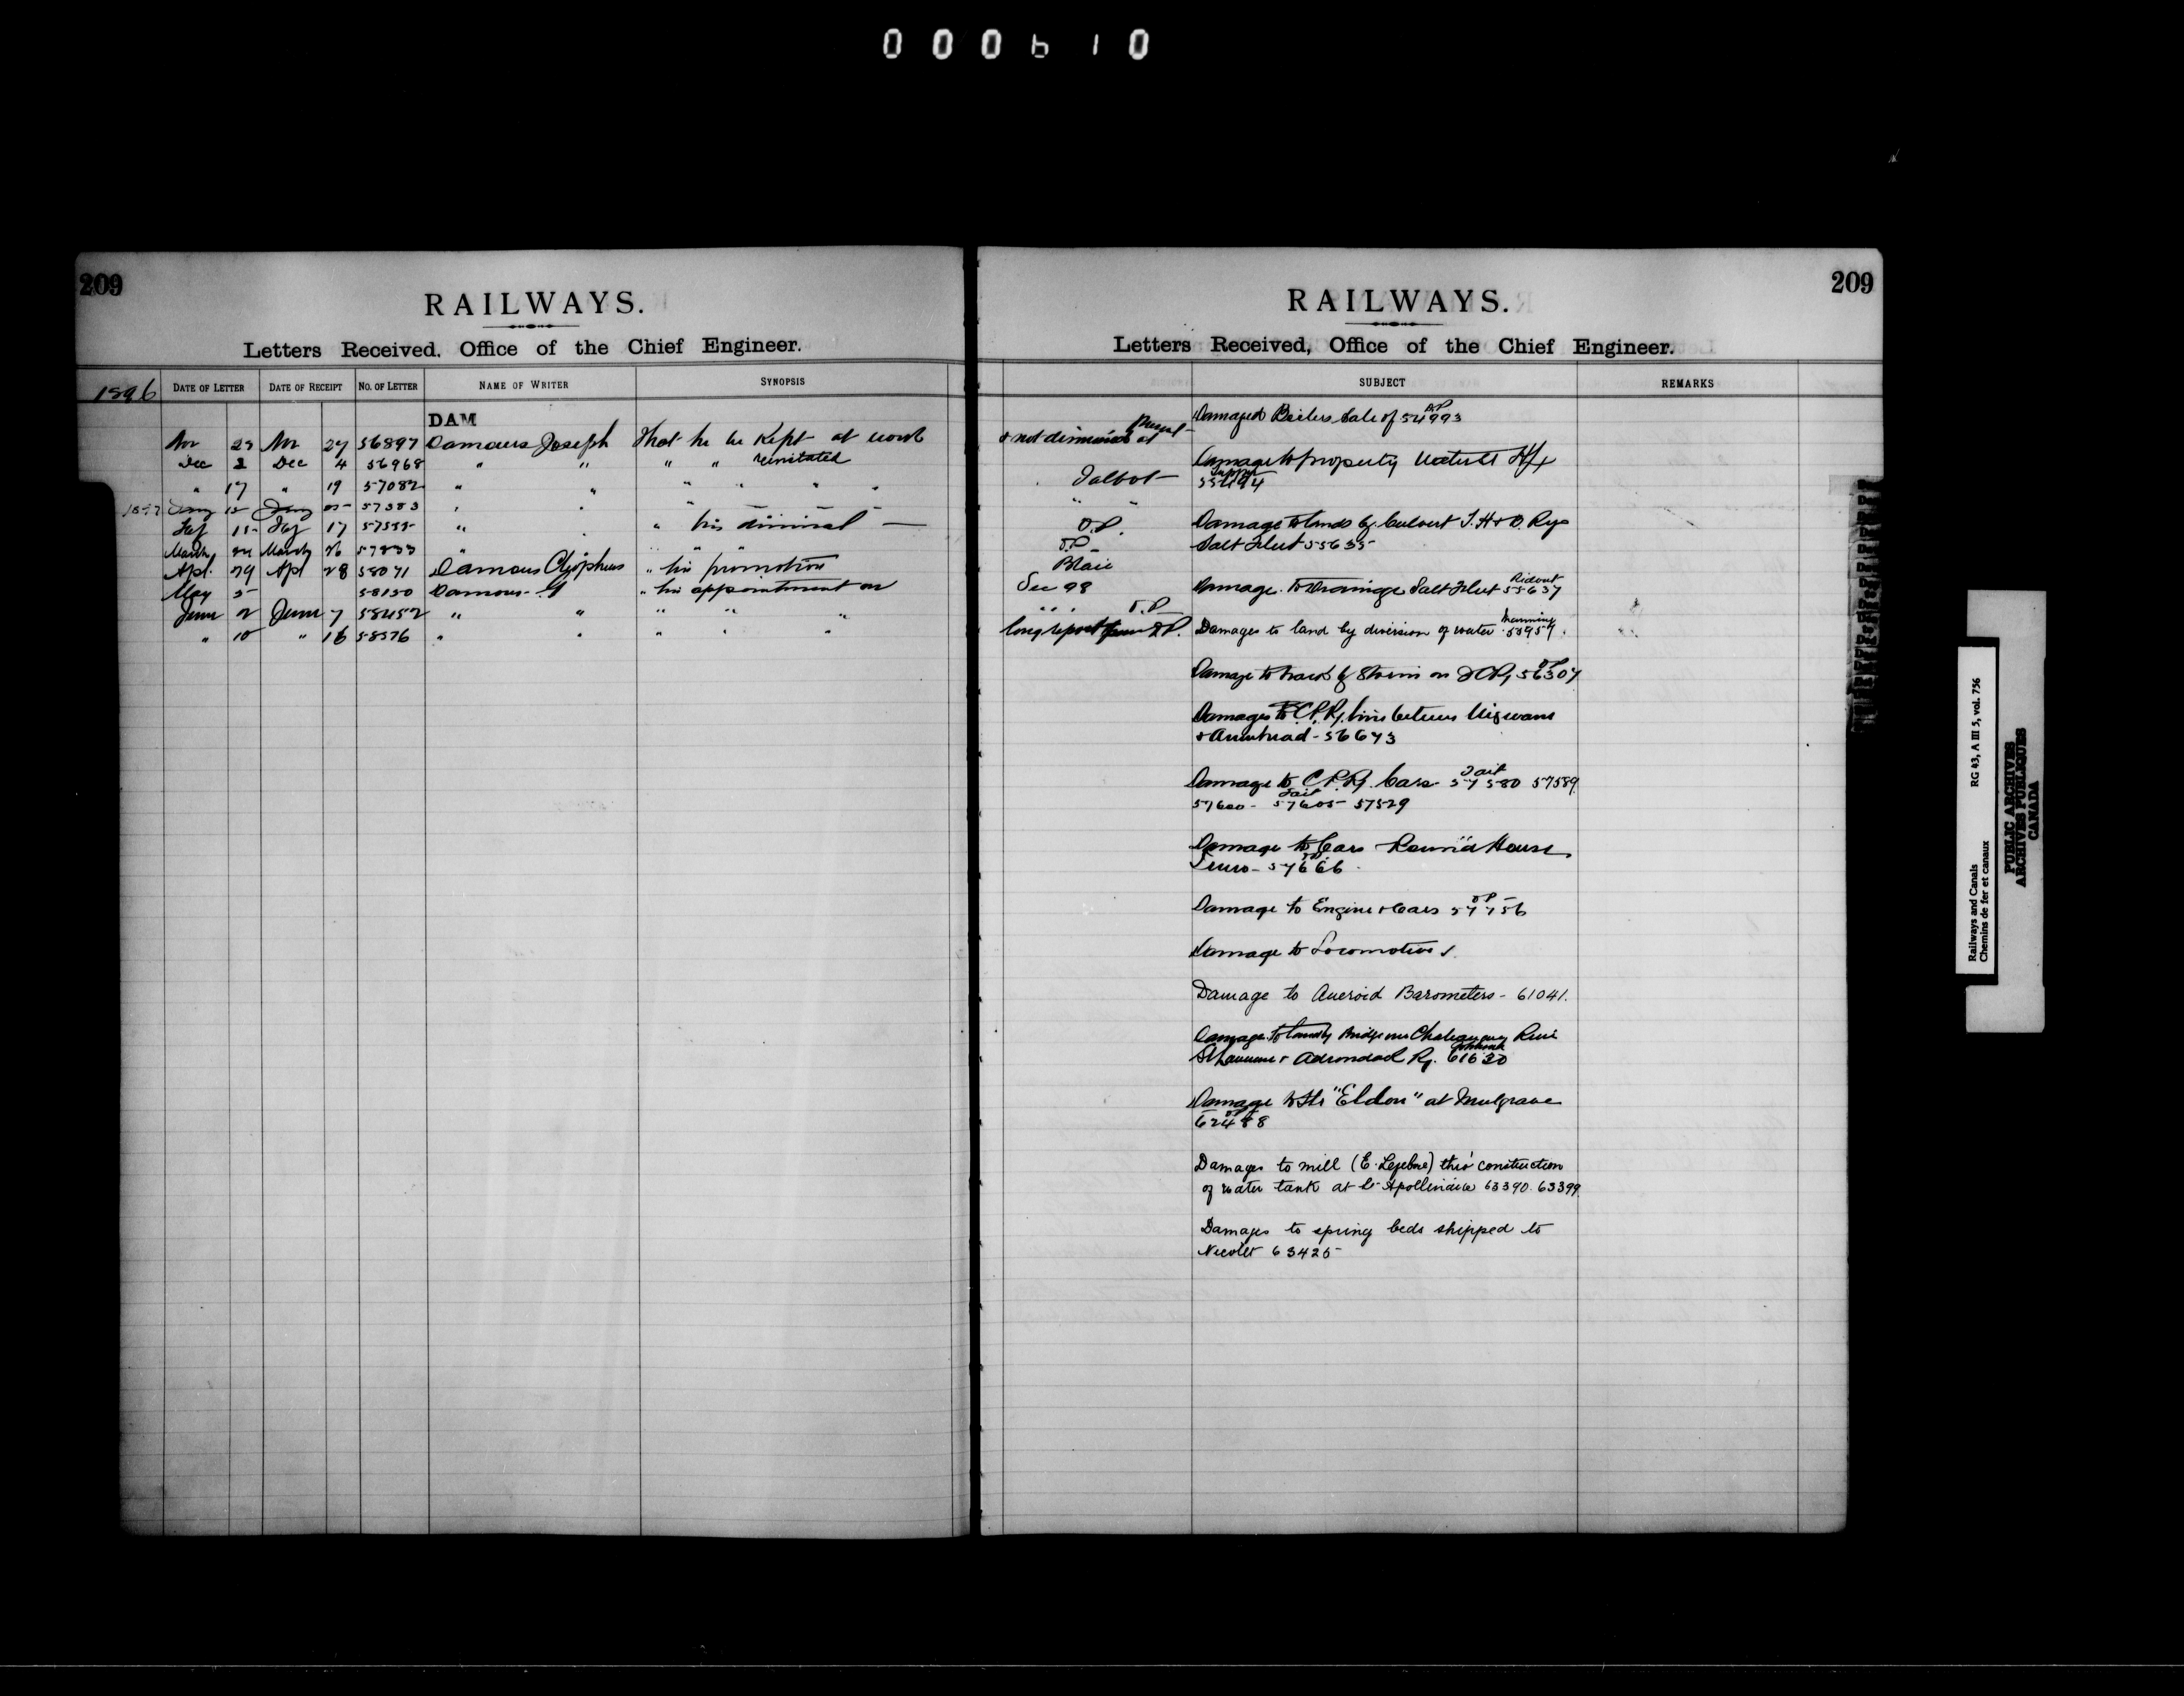 000610
209
RAILWAYS.
Letters Received, Office of the Chief Engineer.
1896 DATE OF LETTER DATE OF RECEIPT NO. OF LETTER NAME OF WRITER SYNOPSIS
DAM
Nov 23 Nov 27 56897 Damours Joseph That he be Kept at work
Dec 2 Dec 4 56968 " " " " reinstated
" 17 " 19 57082 " " " " " "
1897 Jany 15 Jany 57383
Feb 15 Feb 17 57555 " " his dismissal —
March 24 March 26 57833 " " " "
Apl. 29 Apl 28 58071 Damours Cleophus " his promotion
May 5 58130 Damours " his appointment on
June 2 June 7 58452 " " " " "
" 10 " 16 58576 " " " " "
209
RAILWAYS.
Letters Received, Office of the Chief Engineer.
SUBJECT REMARKS
& not dismissed at
Talbot
" "
D.P.
D.P.
Blair
Sec 98
" " D.P.
long report from D.P.
Damaged Boilers Sale of 54993
Damage to property Hfx
Damage to lands by Culvert T. H & B. Ry
Salt Fleet 55635
Damage to Drainage Salt Fleet Ridout 55637
Damages to land by diversion of water
Damage to track by Storm on ICRy 56307
Damages to C.P.Ry. line between
& 56673
Damage to C.P.Ry. Cars Tait 57580 57589
57600 - Tait 57605 57529
Damage to Cars Round House
Truro - 57666
Damage to Engine & Cars 57756
Damage to Locomotives
Damage to Aneroid Barometers - 61041.
Damage to Bridge over Chateauguay River
St Lawrence & Adirondack Ry. 61630
Damage to Str "Eldon" at Mulgrave
62488
Damages to mill (E. Lefebvre) thro' construction
of water tank at St Apollinaire 63390. 63399
Damages to spring beds shipped to
Nicolet 63425
Railways and Canals RG 43, A III 5, vol. 756
Chemins de fer et canaux
PUBLIC ARCHIVES
ARCHIVES PUBLIQUES
CANADA